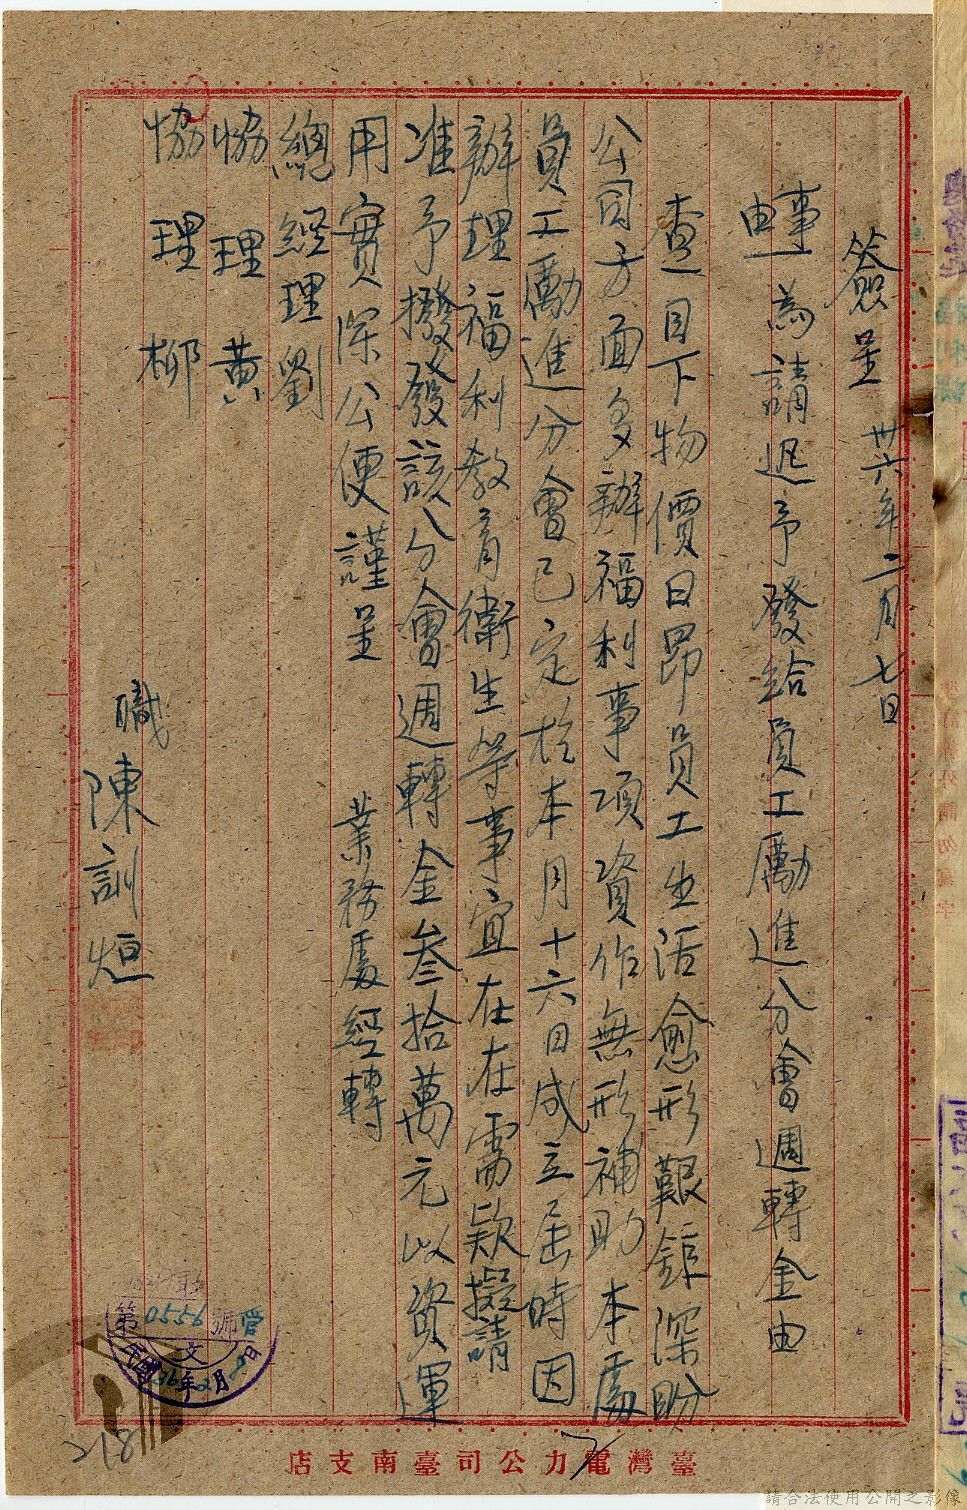 簽呈 卅六年二月七日
事由 為請迅予發給員工勵進分會週轉金由
查目下物價日昂員工生活愈形艱鉅深盼
公司方面多辦福利事項資作無形補助本處
員工勵進分會已定於本月十六日成立屆時因
辦理福利教育衛生等事宜在在需欵擬請
准予撥發該分會週轉金叁拾萬元以資運
用實深公便謹呈 業務處經轉
總經理劉
協理黃
協理柳
職陳訓烜
第0556號
文
36年2月8日
218
臺灣電力公司臺南支店
請合法使用公開之影像